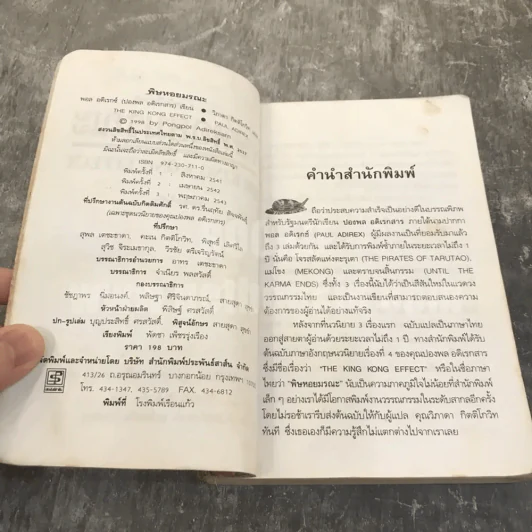 พิษหอยมรณะ
พอล อดิเรกซ์ (ปองพล อดิเรกสาร) เขียน • วิภาดา กิตติโกวิท แปล
THE KING KONG EFFECT • PAUL ADIREX
© 1998 by Pongpol Adireksarn
สงวนลิขสิทธิ์ในประเทศไทยตาม พ.ร.บ.ลิขสิทธิ์ พ.ศ.
ISBN 974-230-711-0
พิมพ์ครั้งที่ 1 : สิงหาคม 2541
พิมพ์ครั้งที่ 2 : เมษายน 2542
พิมพ์ครั้งที่ 3 : พฤษภาคม 2543
ที่ปรึกษา
บรรณาธิการอำนวยการ อาทร เตชะธาดา
บรรณาธิการ จำเนียร พลสวัสดิ์
กองบรรณาธิการ
หัวหน้าฝ่ายผลิต พิสิษฐ์ ศรสวัสดิ์
ปก-รูปเล่ม บุญประสิทธิ์ ศรสวัสดิ์, พิสูจน์อักษร สายสุดา
เรียงพิมพ์ พัดชา เพ็ชรรุ่งเรือง
ราคา 198 บาท
พิมพ์และจำหน่ายโดย บริษัท สำนักพิมพ์ประพันธ์สาส์น จำกัด
413/26 ถ.อรุณอมรินทร์ บางกอกน้อย กรุงเทพฯ
โทร. 434-1347, 435-5789 FAX. 434-6812
พิมพ์ที่ โรงพิมพ์เรือนแก้ว
คำนำสำนักพิมพ์
ถือว่าประสบความสำเร็จเป็นอย่างดีในบรรณพิภพ
สำหรับรัฐมนตรีนักเขียน ปองพล อดิเรกสาร ภายใต้นามปากกา
พอล อดิเรกซ์ (PAUL ADIREX) ผู้มีผลงานเป็นที่ยอมรับมาแล้ว
3 เล่มด้วยกัน และได้รับการพิมพ์ซ้ำภายในระยะเวลาไม่ถึง 1
ปี นั่นคือ โจรสลัดแห่งตะรุเตา (THE PIRATES OF TARUTAO)
แม่โขง (MEKONG) และตราบจนสิ้นกรรม (UNTIL THE
KARMA ENDS) ซึ่งทั้ง 3 เรื่องนี้นับได้ว่าเป็นสีสันใหม่ในแวดวง
วรรณกรรมไทย และเป็นงานเขียนที่สามารถตอบสนองความ
ต้องการของผู้อ่านได้อย่างแท้จริง
หลังจากที่นวนิยาย 3 เรื่องแรก ฉบับแปลเป็นภาษาไทย
ออกสู่สายตาผู้อ่านด้วยระยะเวลาไม่ถึง 1 ปี ทางสำนักพิมพ์ได้รับ
ต้นฉบับภาษาอังกฤษนวนิยายเรื่องที่ 4 ของคุณปองพล อดิเรกสาร
ซึ่งมีชื่อเรื่องว่า "THE KING KONG EFFECT" หรือในชื่อภาษา
ไทยว่า "พิษหอยมรณะ" นับเป็นความภาคภูมิใจไม่น้อยที่สำนักพิมพ์
เล็ก ๆ อย่างเราได้มีโอกาสพิมพ์งานวรรณกรรมในระดับสากลอีกครั้ง
โดยไม่รอช้าเรารีบส่งต้นฉบับให้กับผู้แปล คุณวิภาดา กิตติโกวิท
ทันที ซึ่งเธอเองก็มีความรู้สึกไม่แตกต่างไปจากเราเลย